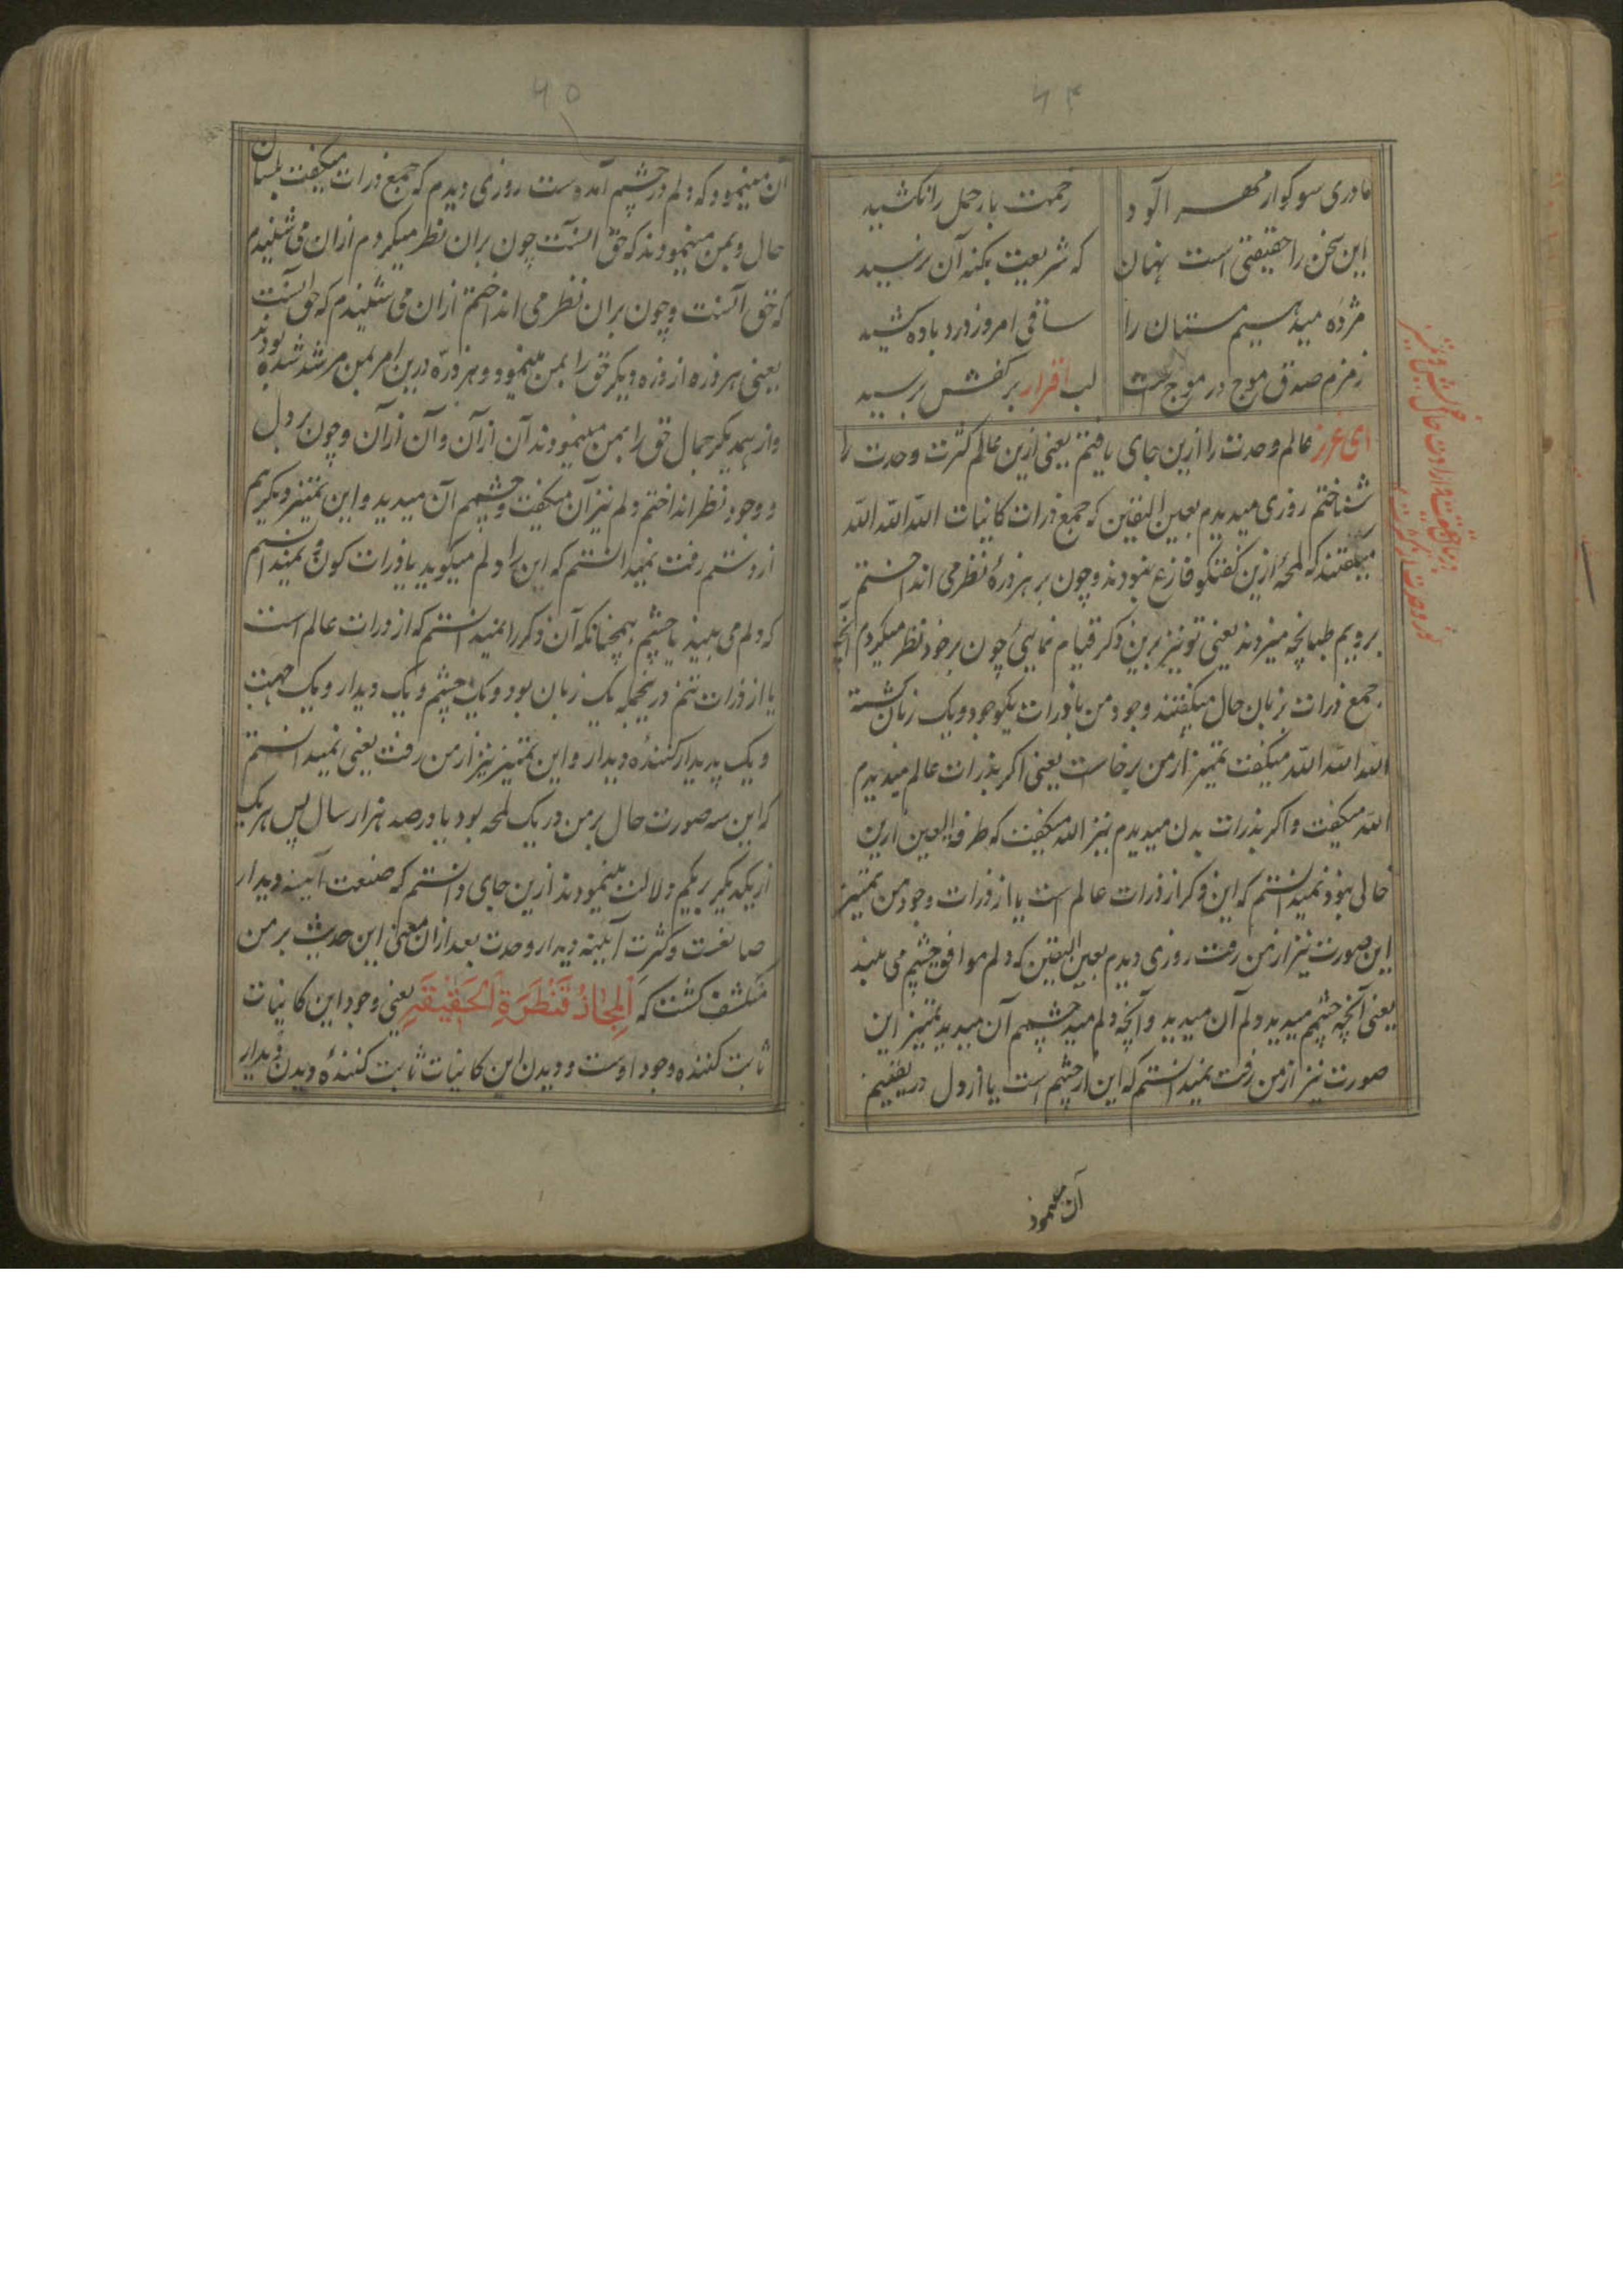 ۶۴
مادری سوکوار مهر آلود
زحمت بار حمل را نکشید
این سخن را حقیقتی است نهان
که شریعت بکنه آن نرسید
مژده میدهیم مستان را
ساقی امروز درد باده کشید
زمزم صدق موج در موج است
لب اقرار بر کفش برسید
ای عزیز عالم وحدت را ازین جای یافتم یعنی ازین عالم کثرت وحدت را
شناختم روزی میدیدم بعین الیقین که جمع ذرات کاینات الله الله الله
میگفتند که لمحهٔ ازین گفتگو فارغ نبودند و چون بر هر ذرهٔ نظر می انداختم
برویم طبانچه میزدند یعنی تو نیز برین ذکر قیام نمایی چون بر خود نظر میکردم آنچه
جمع ذرات بزبان حال میگفتند وجود من با ذرات یکوجود و یک زبان گشته
الله الله الله میگفت تمیز از من برخاست یعنی اگر بذرات عالم میدیدم
الله میگفت و اگر بذرات بدن میدیدم نیز الله میگفت که طرفة العین ازین
خالی نبود نمیدانستم که این ذکر از ذرات عالم است یا از ذرات وجود من تمیز
این صورت نیز از من رفت روزی دیدم بعین الیقین که دلم موافق چشم می بیند
یعنی آنچه چشمم میدید دلم آن میدید و آنچه دلم میدید چشمم آن میدید تمیز این
صورت نیز از من رفت نمیدانستم که این از چشم است یا از دل در
آن مینمود
۶۵
آن مینمود که دلم در چشم آمده است روزی دیدم که جمع ذرات میگفت بلسان
حال و بمن مینمودند که حق اینست چون بران نظر میکردم ازان می شنیدم
که حق آنست و چون بران نظر می انداختم ازان می شنیدم که حق اینست
یعنی هر ذره از ذره دیگر حق را بمن مینمود و هر ذره درین امر بمن مرشد شده بودند
و از همدیگر جمال حق را بمن مینمودند آن ازان و آن ازان و چون بر دل
و وجود نظر انداختم دلم نیز آن میگفت و چشمم آن میدید و این تمیز دیگر هم
از دستم رفت نمیدانستم که این را دلم میگوید یا ذرات کون و نمیدانستم
که دلم می بیند یا چشم همچنانکه آن ذکر را نمیدانستم که از ذرات عالم است
یا از ذرات تنم درینمحل یک زبان بود و یک چشم و یک دیدار و یک جهت
و یک پدیدار کنندهٔ دیدار و این تمیز نیز از من رفت یعنی نمیدانستم
که این سه صورت حال بر من در یک لمحه بود یا در صد هزار سال پس هر یک
از یکدیگر بریکم دلالت مینمودند ازین جای دانستم که صنعت آئینه دیدار
صانعست و کثرت آیینه دیدار وحدت بعد ازان معنی این حدیث بر من
منکشف گشت که اَلمَجَازُ قَنْطَرَةُ اَلْحَقِیْقَةِ یعنی وجود این کاینات
ثابت کننده وجود اوست و دیدن این کاینات ثابت کنندهٔ دیدن دیدار